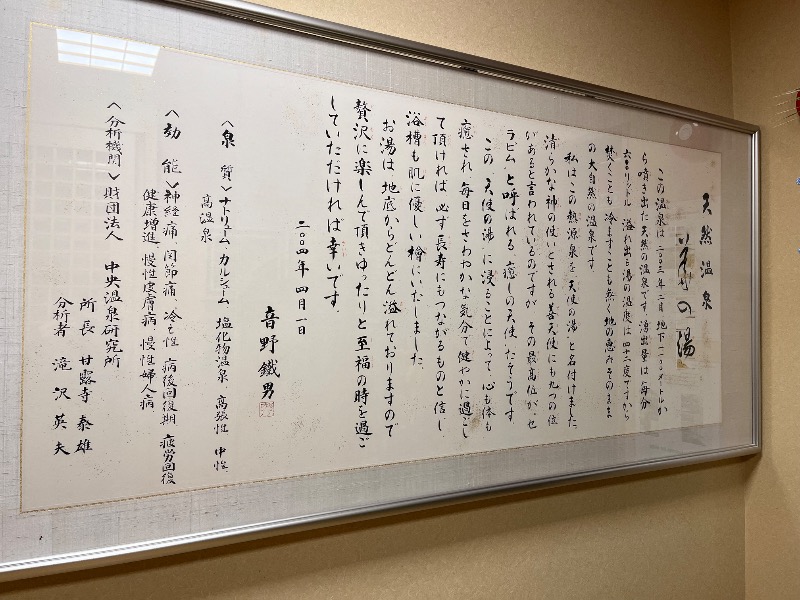 天然温泉
の湯
この温泉は二〇〇三年二月 地下 メートルか
ら噴き出た天然の温泉です。湧出量は毎分
リットル 溢れ出る湯の温度は四十二度ですから
焚くことも冷ますことも無く地の恵みそのまま
の大自然の温泉です。
私はこの熱源泉を"天使の湯"と名付けました。
清らかな神の使いとされる善天使にも九つの位
があると言われているのですが その最高位が、セ
ラピム、と呼ばれる"癒しの天使"だそうです
この"天使の湯"に浸ることによって、心も体も
癒され 毎日をさわやかな気分で健やかに過ごし
て頂ければ 必ず長寿にもつながるものと信じ
浴槽も肌に優しい檜にいたしました。
お湯は地底からどんどん溢れておりますので
贅沢に楽しんで頂きゆったりと至福の時を過ご
していただければ幸いです。
二〇〇四年 四月一日
音野鐵男
〈泉質〉ナトリューム カルシューム 塩化物温泉 高張性 中性
高温泉
〈効能〉神経痛、関節痛、冷え性 病後回復期 疲労回復
健康増進 慢性皮膚病 慢性婦人病
〈分析機関〉財団法人 中央温泉研究所
所長 甘露寺 泰雄
分析者 滝沢英夫